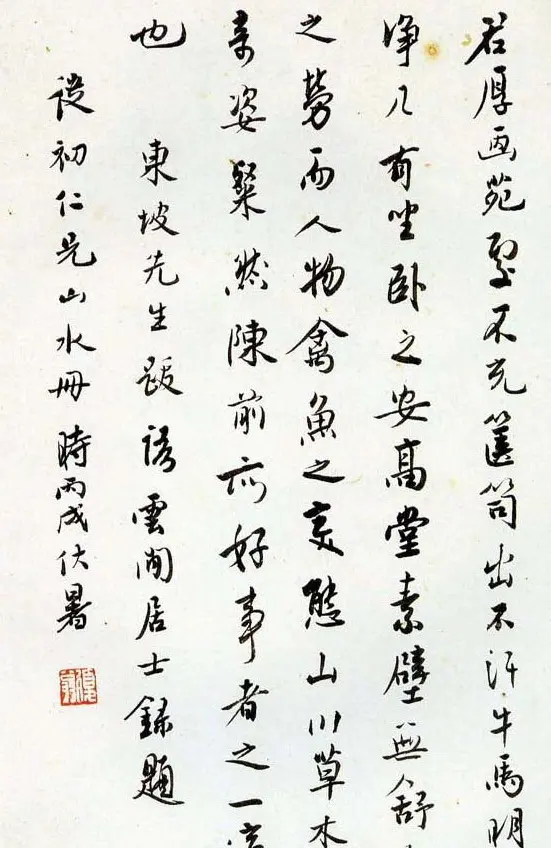 君厚画苑處不充篋笥出不汗牛馬明
净几有坐卧之安高堂素壁無舒
之勞而人物禽魚之变態山川草木
奇姿粲然陳前亦好事者之一
也
東坡先生跋語雲閒居士録題
初仁兄山水冊時丙戌伏暑